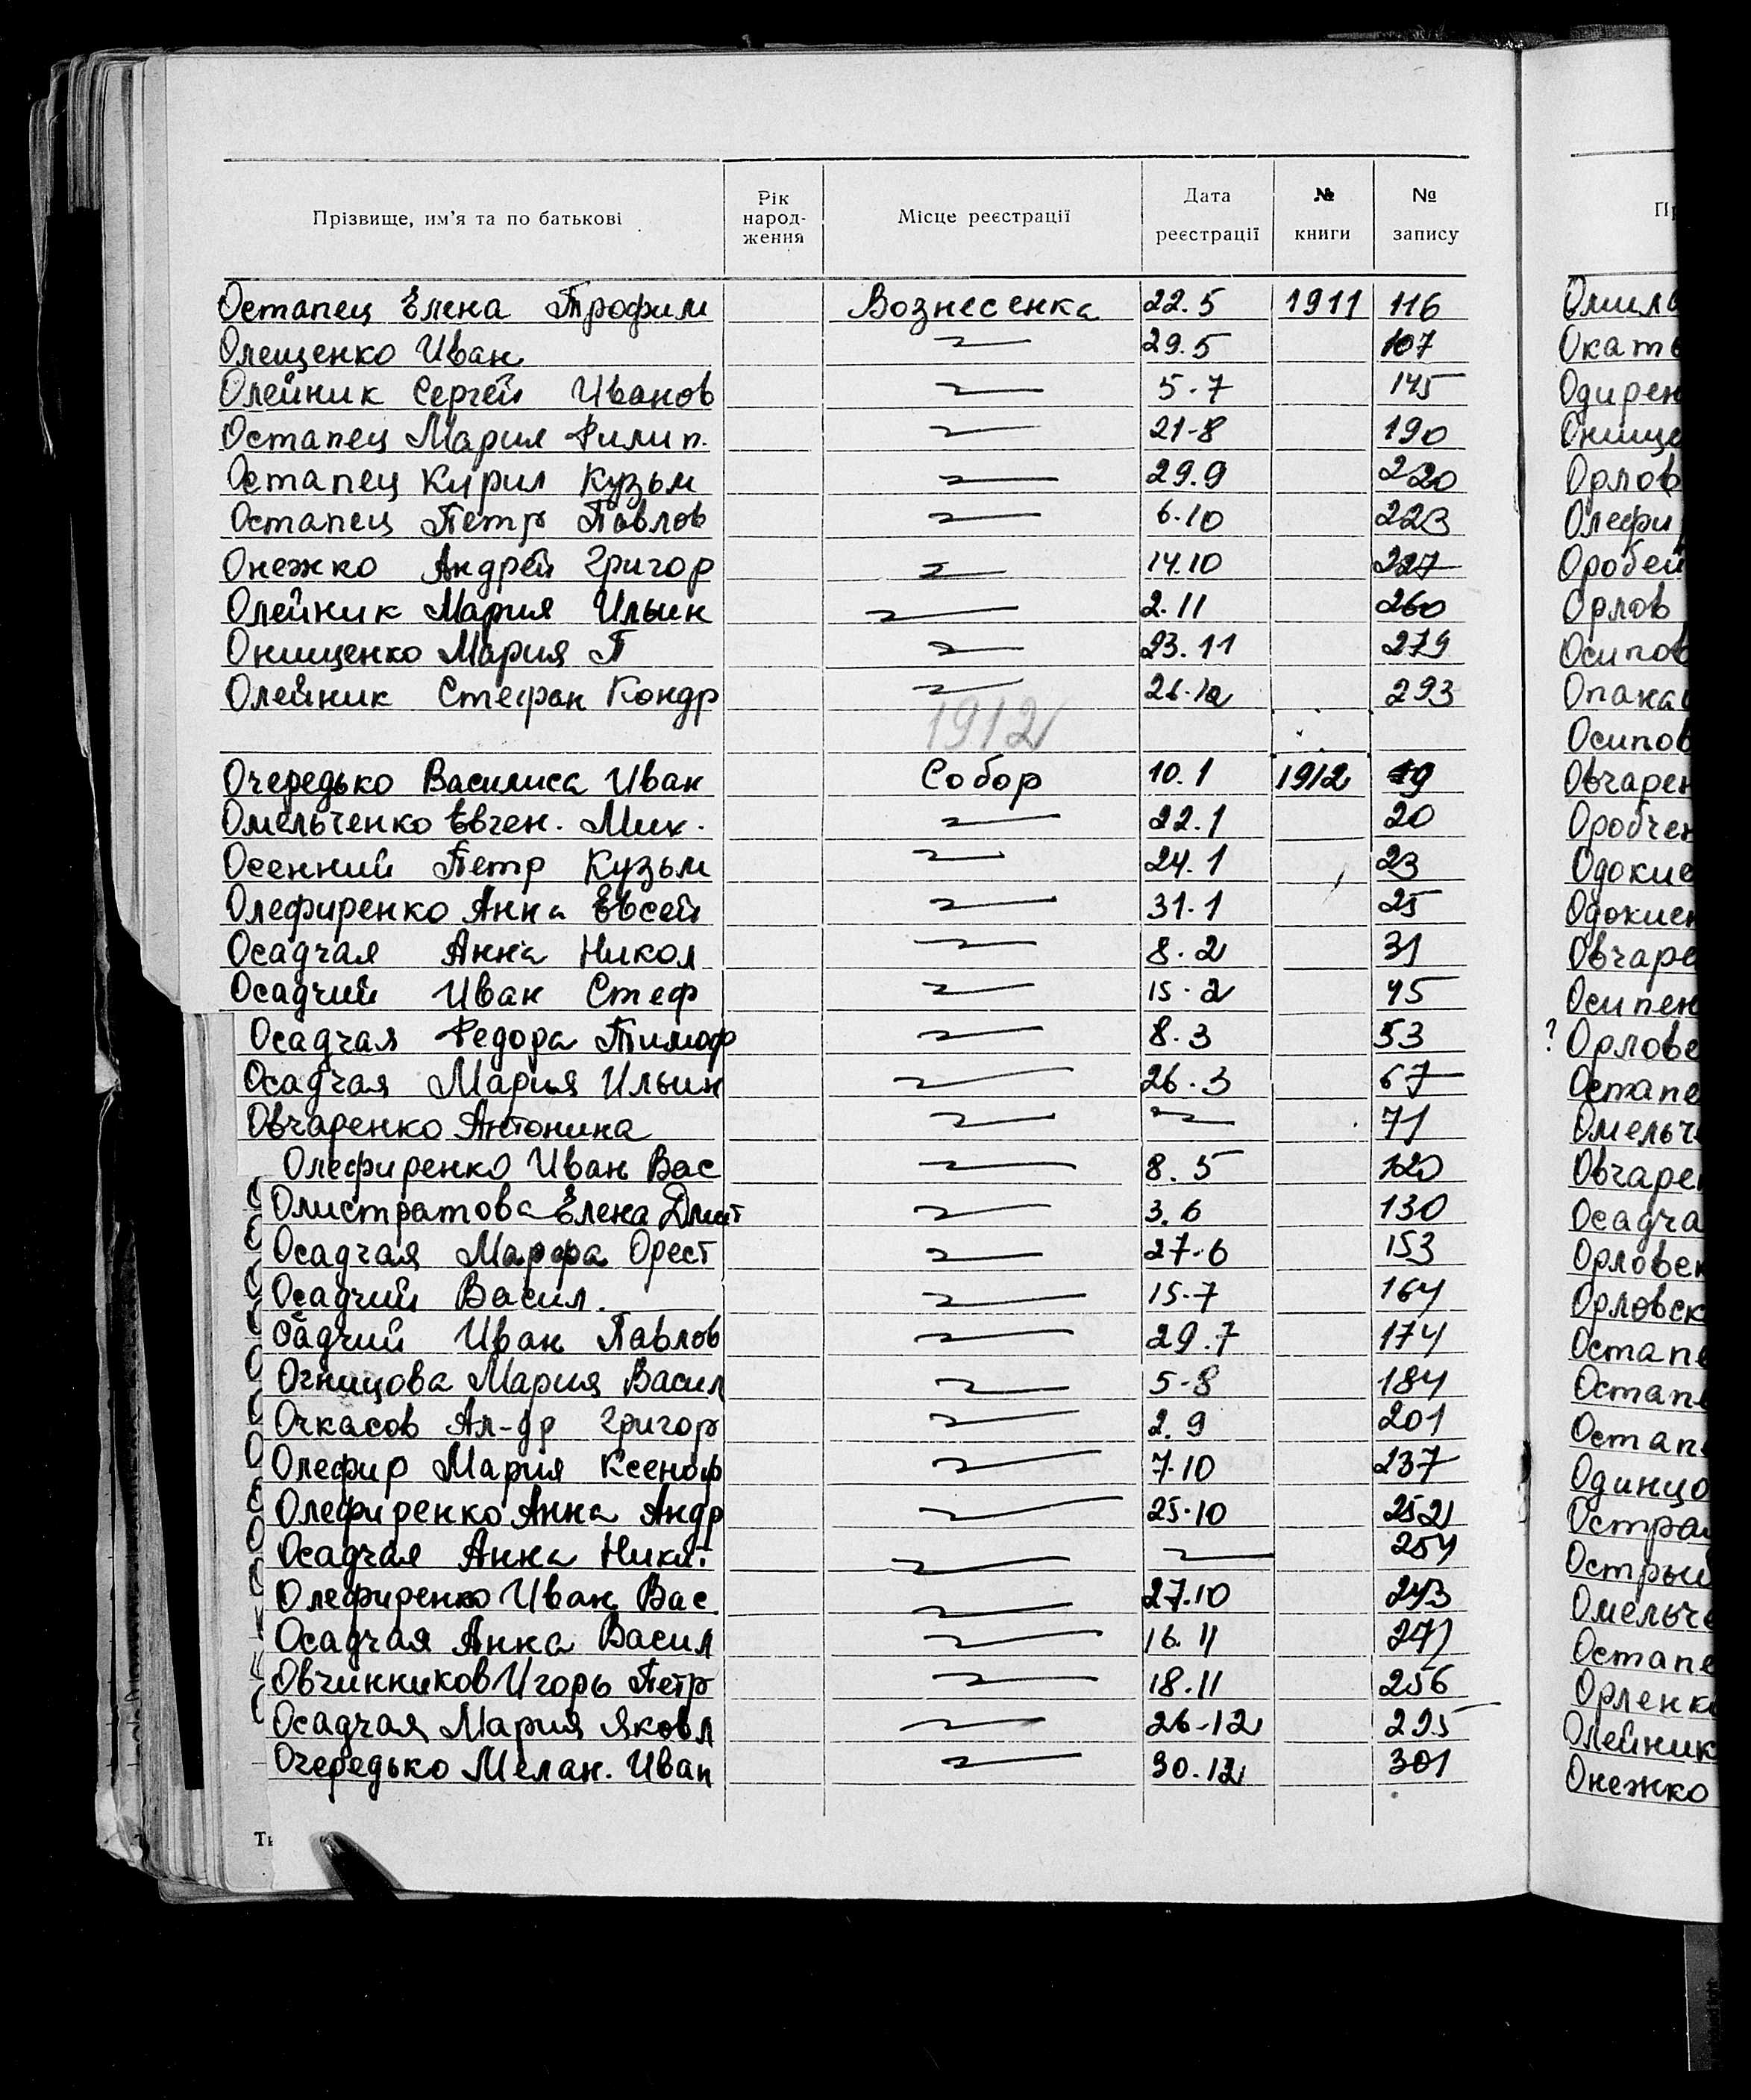 Прізвище, им'я та по батькові Рік народ- ження Місце реєстрації Дата реєстрації № книги № запису
Остапец Елена Трофим Вознесенка 22.5 1911 116
Олещенко Иван 29.5 107
Олейник Сергей Иванов 5.7 145
Остапец Мария Филип. 21-8 190
Остапец Кирил Кузьм 29.9 220
Остапец Петр Павлов 6.10 223
Онежко Андрей Григор 14.10 227
Олейник Мария Ильин 2.11 260
Онищенко Мария П 23.11 279
Олейник Стефан Кондр 26.12 293
1912
Очередько Василиса Иван Собор 10.1 1912 19
Омельченко Евген. Мих. 22.1 20
Осенний Петр Кузьм 24.1 23
Олефиренко Анна Евсей 31.1 25
Осадчая Анна Никол 8.2 31
Осадчий Иван Стеф 15.2 45
Осадчая Федора Тимоф 8.3 53
Осадчая Мария Ильин 26.3 67
Овчаренко Антонина 71
Олефиренко Иван Вас 8.5 120
Олистратова Елена Дмит 3.6 130
Осадчая Марфа Орест 27.6 153
Осадчий Васил. 15.7 164
Оадчий Иван Павлов 29.7 174
Огницова Мария Васил 5-8 184
Очкасов Ал-др Григор 2.9 201
Олефир Мария Ксеноф 7.10 237
Олефиренко Анна Андр 25.10 252
Осадчая Анна Никит 254
Олефиренко Иван Вас 27.10 243
Осадчая Анна Васил 16.11 247
Овчинников Игорь Петр 18.11 256
Осадчая Мария Яковл 26-12 295
Очередько Мелан. Иван 30.12 301
Орлов
Орлов
? 
Олейник
Онежко